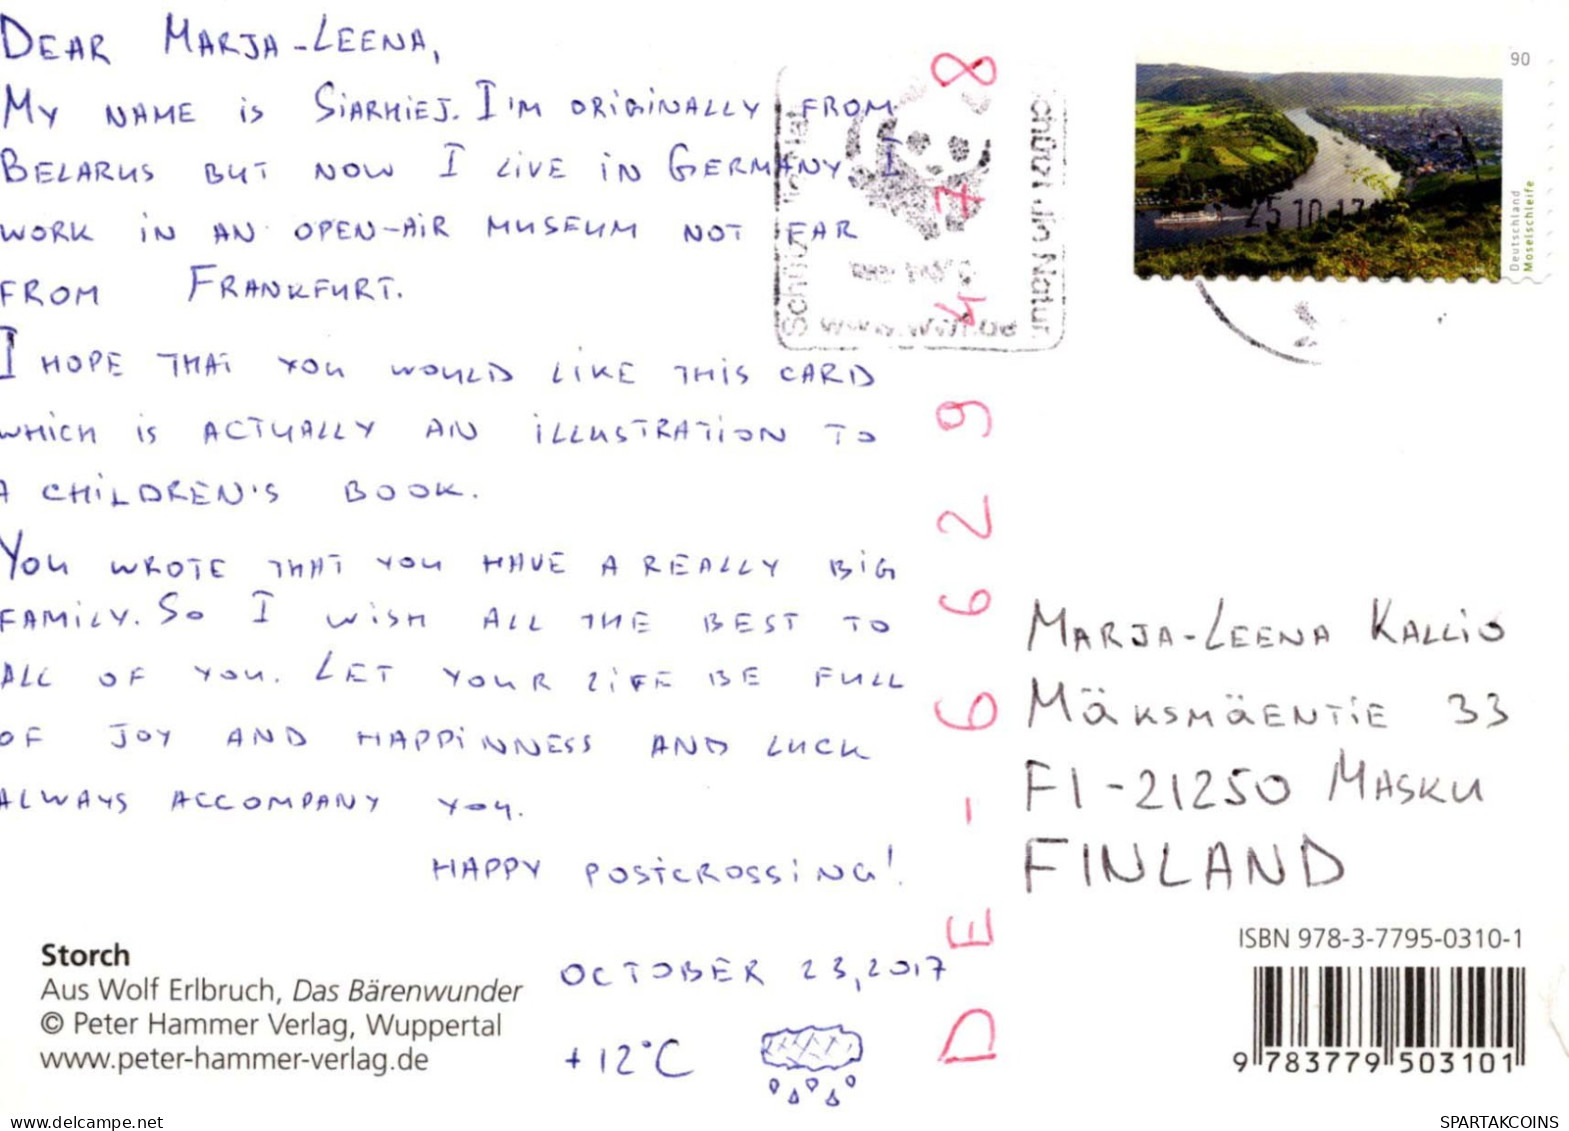 DEAR MARJA-LEENA,
MY NAME IS SIARHIEJ. I'M ORIGINALLY FROM
BELARUS BUT NOW I LIVE IN GERMANY I
WORK IN AN OPEN-AIR MUSEUM NOT FAR
FROM FRANKFURT.
I HOPE THAT YOU WOULD LIKE THIS CARD
WHICH IS ACTUALLY AN ILLUSTRATION TO
A CHILDREN'S BOOK.
YOU WROTE THAT YOU HAVE A REALLY BIG
FAMILY. SO I WISH ALL THE BEST TO
ALL OF YOU. LET YOUR LIFE BE FULL
OF JOY AND HAPPINNESS AND LUCK
ALWAYS ACCOMPANY YOU.
HAPPY POSTCROSSING!
OCTOBER 23, 2017
+12°C
Storch
Aus Wolf Erlbruch, Das Bärenwunder
© Peter Hammer Verlag, Wuppertal
www.peter-hammer-verlag.de
DE-6629478
90
Deutschland
Moselschleife
25.10.17
in Natur
MARJA-LEENA KALLIO
MÄKSMÄENTIE 33
FI-21250 MASKU
FINLAND
ISBN 978-3-7795-0310-1
9 783779 503101
www.delcampe.net
SPARTAKCOINS